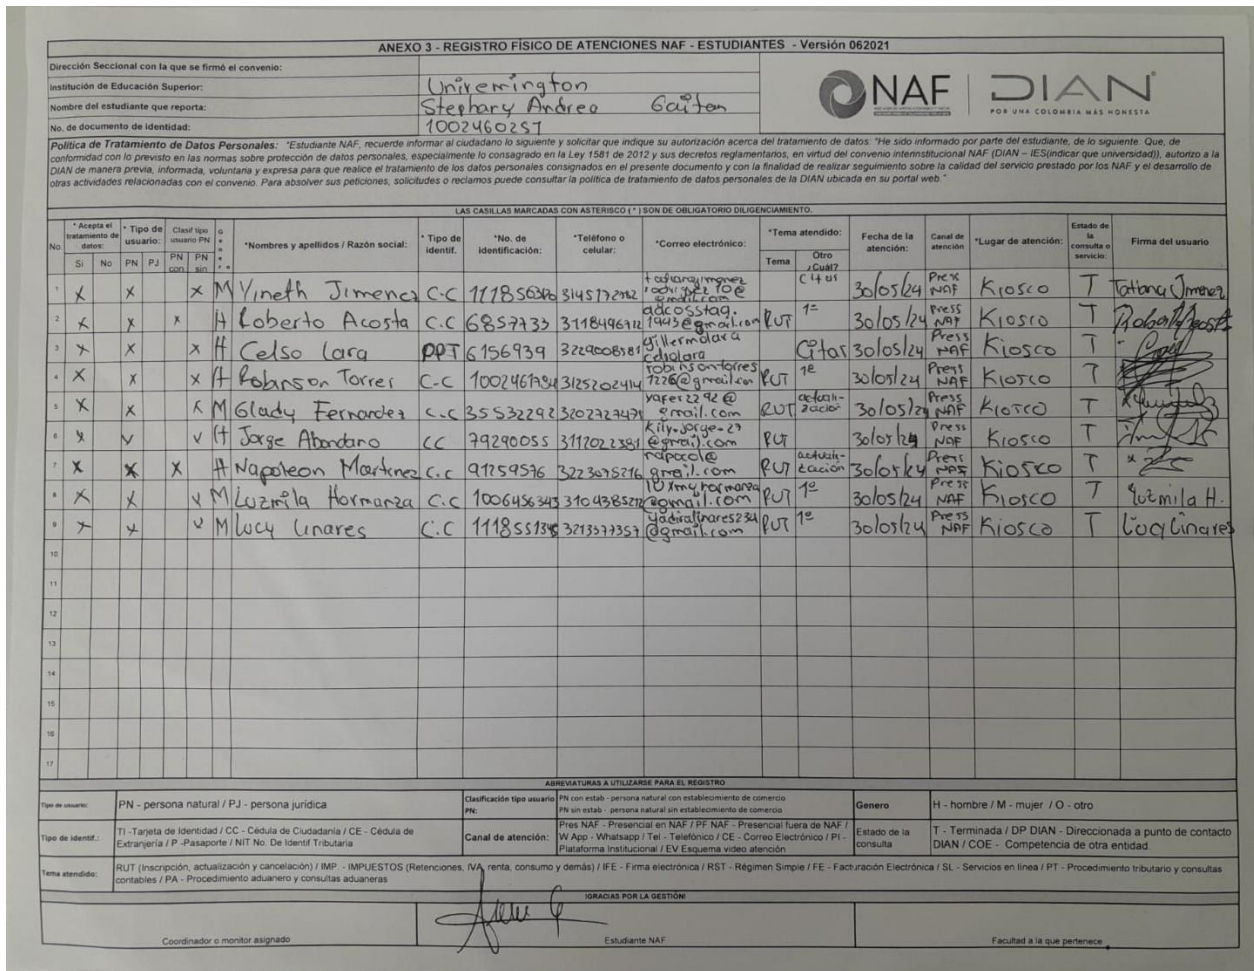 ANEXO 3 - REGISTRO FÍSICO DE ATENCIONES NAF - ESTUDIANTES - Versión 062021
Dirección Seccional con la que se firmó el convenio:
Institución de Educación Superior: Univemington
Nombre del estudiante que reporta: Stephany Andrea Gaitan
No. de documento de identidad: 1002460257
NAF DIAN
POR UNA COLOMBIA MÁS HONESTA
Política de Tratamiento de Datos Personales: "Estudiante NAF, recuerde informar al ciudadano lo siguiente y solicitar que indique su autorización acerca del tratamiento de datos: "He sido informado por parte del estudiante, de lo siguiente. Que, de
conformidad con lo previsto en las normas sobre protección de datos personales, especialmente lo consagrado en la Ley 1581 de 2012 y sus decretos reglamentarios, en virtud del convenio interinstitucional NAF (DIAN – IES(indicar que universidad)), autorizo a la
DIAN de manera previa, informada, voluntaria y expresa para que realice el tratamiento de los datos personales consignados en el presente documento y con la finalidad de realizar seguimiento sobre la calidad del servicio prestado por los NAF y el desarrollo de
otras actividades relacionadas con el convenio. Para absolver sus peticiones, solicitudes o reclamos puede consultar la política de tratamiento de datos personales de la DIAN ubicada en su portal web."
LAS CASILLAS MARCADAS CON ASTERISCO (*) SON DE OBLIGATORIO DILIGENCIAMIENTO.
No * Acepta el tratamiento de datos: * Tipo de usuario: Clasif tipo usuario PN *Nombres y apellidos / Razón social: * Tipo de identif. *No. de identificación: *Teléfono o celular: *Correo electrónico: *Tema atendido: Fecha de la atención: Canal de atención *Lugar de atención: Estado de la consulta o servicio: Firma del usuario
Si No PN PJ PN con PN sin Tema Otro ¿Cuál?
1 X X X M Yineth Jimenez C.C 3145172982 Citas 30/05/24 Press NAF Kiosco T Tatiana Jimenez
2 X X X H Roberto Acosta C.C 6857733 3118496712 RUT 1º 30/05/24 Press NAF Kiosco T
3 X X X H Celso Lara PPT 6156939 3229008581 gillermolara celsolara Citas 30/05/24 Press NAF Kiosco T
4 X X X H Robinson Torres C-C 1002461784 3125202414 robinsontorres 1226@gmail.com RUT 1º 30/05/24 Press NAF Kiosco T
5 X X X M Glady Fernandez C.C 35532292 3202727471 yafer2292@ gmail.com RUT actuali- zacion 30/05/24 Press NAF Kiosco T
6 X V V H Jorge Abondano CC 79290055 3112022381 Kily-jorge-27 @gmail.com RUT 30/05/24 Press NAF Kiosco T
7 X X X H Napoleon Martinez C.C 91259576 3223075216 napocol@ gmail.com RUT actuali- zación 30/05/24 Press NAF Kiosco T
8 X X V M Luzmila Hormanza C.C 1006456343 3104385212 @gmail.com RUT 1º 30/05/24 Press NAF Kiosco T Luzmila H.
9 X X V M Lucy Linares C.C 1118551345 3213577357 yadiralinares234 @gmail.com RUT 1º 30/05/24 Press NAF Kiosco T Lucy Linares
10
11
12
13
14
15
16
17
ABREVIATURAS A UTILIZARSE PARA EL REGISTRO
Tipo de usuario: PN - persona natural / PJ - persona jurídica Clasificación tipo usuario PN: PN con estab - persona natural con establecimiento de comercio
PN sin estab - persona natural sin establecimiento de comercio Genero H - hombre / M - mujer / O - otro
Tipo de identif.: TI -Tarjeta de Identidad / CC - Cédula de Ciudadanía / CE - Cédula de
Extranjería / P -Pasaporte / NIT No. De Identif Tributaria
Canal de atención: Pres NAF - Presencial en NAF / PF NAF - Presencial fuera de NAF /
W App - Whatsapp / Tel - Telefónico / CE - Correo Electrónico / PI -
Plataforma Institucional / EV Esquema video atención
Estado de la consulta T - Terminada / DP DIAN - Direccionada a punto de contacto
DIAN / COE - Competencia de otra entidad
Tema atendido: RUT (Inscripción, actualización y cancelación) / IMP. - IMPUESTOS (Retenciones, IVA, renta, consumo y demás) / IFE - Firma electrónica / RST - Régimen Simple / FE - Facturación Electrónica / SL - Servicios en línea / PT - Procedimiento tributario y consultas
contables / PA - Procedimiento aduanero y consultas aduaneras
¡GRACIAS POR LA GESTIÓN!
Coordinador o monitor asignado Estudiante NAF Facultad a la que pertenece